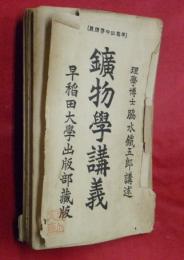 理學博士 脇水鐵五郎 講述
鑛物學講義
早稻田大學出版部藏版